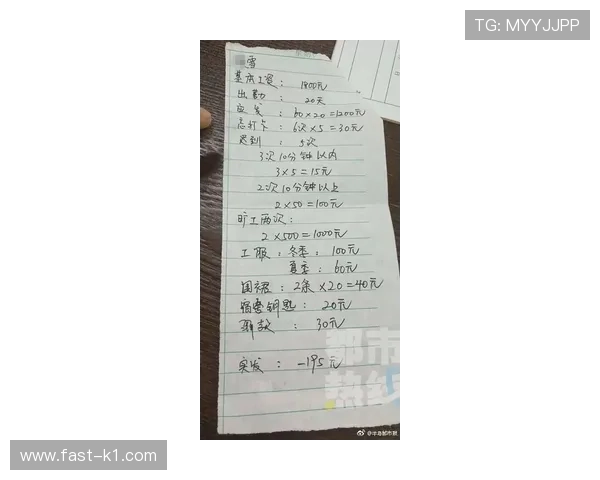 TG: MYYJJPP
雪
基本工资： 1800元
出勤： 20天
应发： 60×20=1200元
忘打卡： 6次×5=30元
迟到： 5次
3次10分钟以内
3×5=15元
2次10分钟以上
2×50=100元
旷工两次：
2×500=1000元
工服：冬季： 100元
夏季： 60元
围裙： 2条×20=40元
宿舍钥匙： 20元
罚款： 30元
实发： -195元
都市
热线
@半岛都市报
www.fast-k1.com